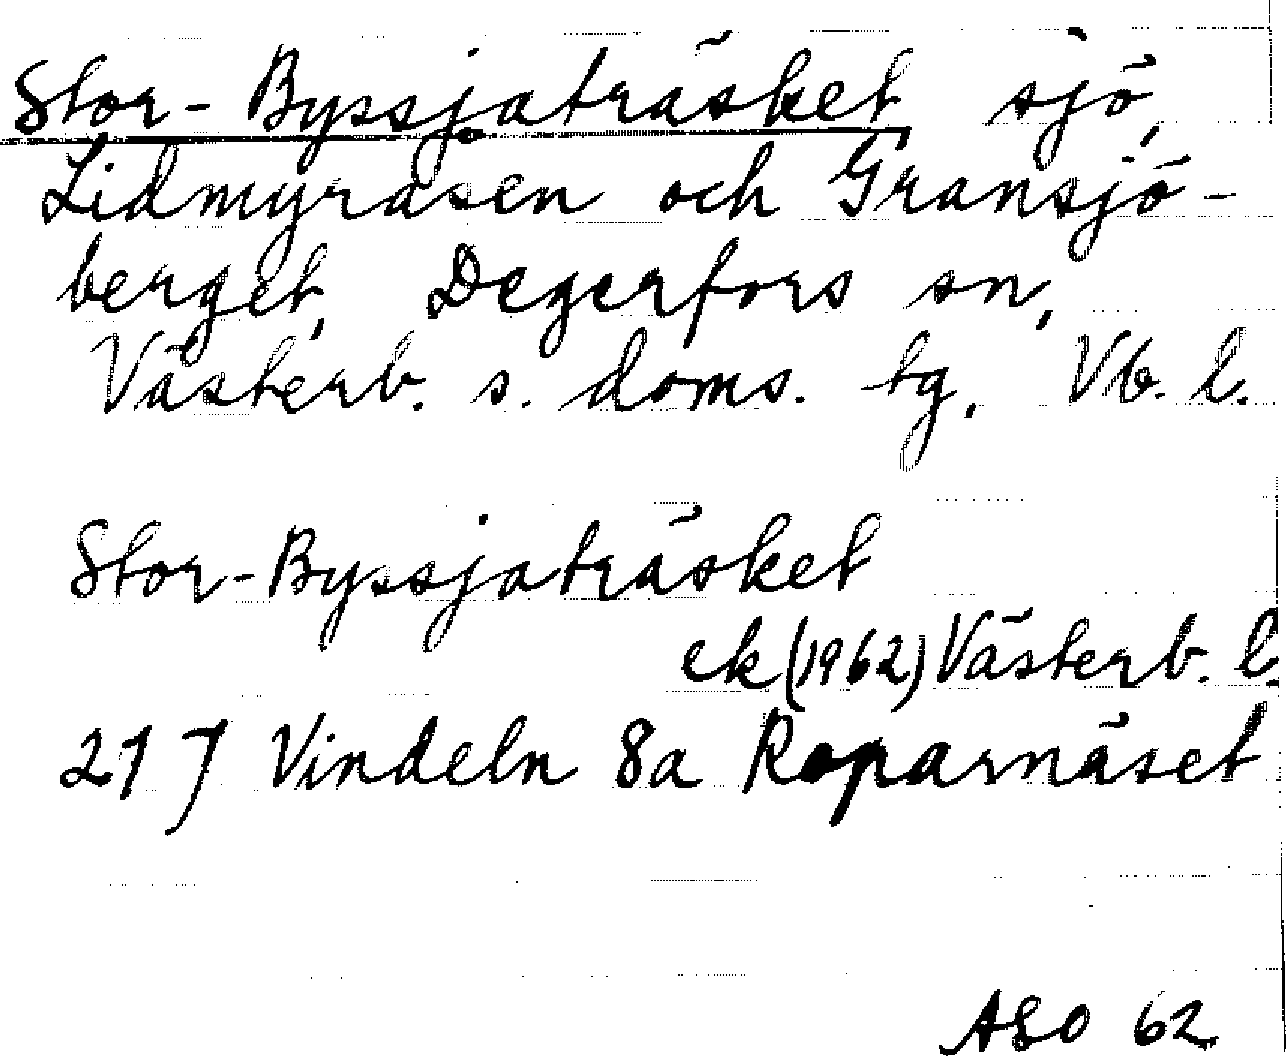 Stor-Byssjaträsket sjö,
Lidmyråsen och Gransjö-
berget, Degerfors sn,
Västerb. s. doms. tg, Vb. l.
Stor-Byssjaträsket
ek (1962) Västerb. l.
21 J Vindeln 8a Roparnäset
ASO 62